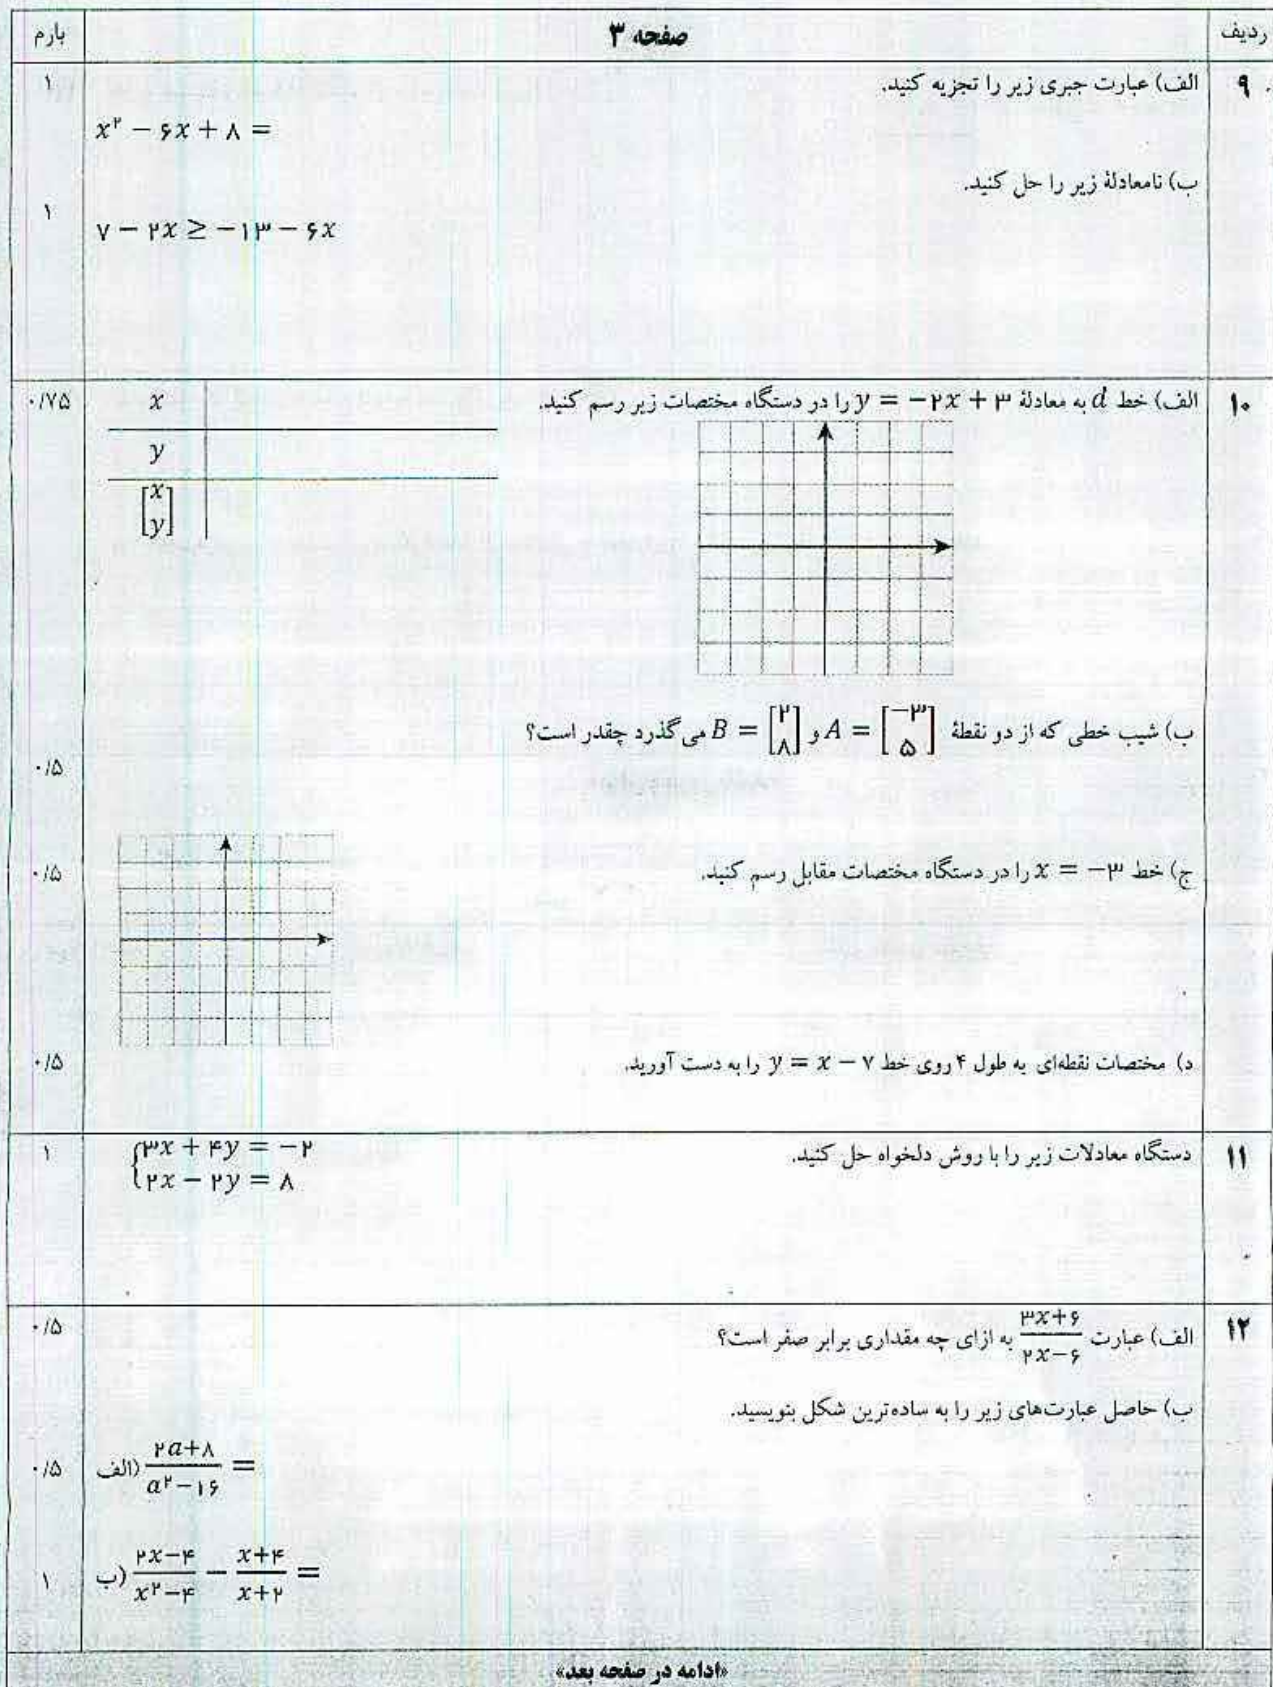 ردیف صفحه ۳ بارم
۹ الف) عبارت جبری زیر را تجزیه کنید. ۱
x² − ۶x + ۸ =
ب) نامعادلهٔ زیر را حل کنید.
۱
۷ − ۲x ≥ −۱۳ − ۶x
۱۰ الف) خط d به معادلهٔ y = −۲x + ۳ را در دستگاه مختصات زیر رسم کنید. ۰/۷۵
x
y
[x y]
ب) شیب خطی که از دو نقطهٔ A = [−۳ ۵] و B = [۲ ۸] می‌گذرد چقدر است؟
۰/۵
ج) خط x = −۳ را در دستگاه مختصات مقابل رسم کنید. ۰/۵
د) مختصات نقطه‌ای به طول ۴ روی خط y = x − ۷ را به دست آورید. ۰/۵
۱۱ دستگاه معادلات زیر را با روش دلخواه حل کنید. ۱
{۳x + ۴y = −۲
۲x − ۲y = ۸
۱۲ الف) عبارت (۳x+۶)/(۲x−۶) به ازای چه مقداری برابر صفر است؟ ۰/۵
ب) حاصل عبارت‌های زیر را به ساده‌ترین شکل بنویسید.
الف) (۲a+۸)/(a²−۱۶) = ۰/۵
ب) (۲x−۴)/(x²−۴) − (x+۴)/(x+۲) = ۱
«ادامه در صفحه بعد»